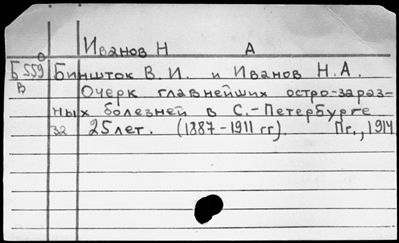 Иванов Н А
Б 559 Биншток В. И. и Иванов Н.А.
В Очерк главнейших остро-зараз-
ных болезней в С.-Петербурге
за 25 лет. (1887-1911 гг). Пг., 1914